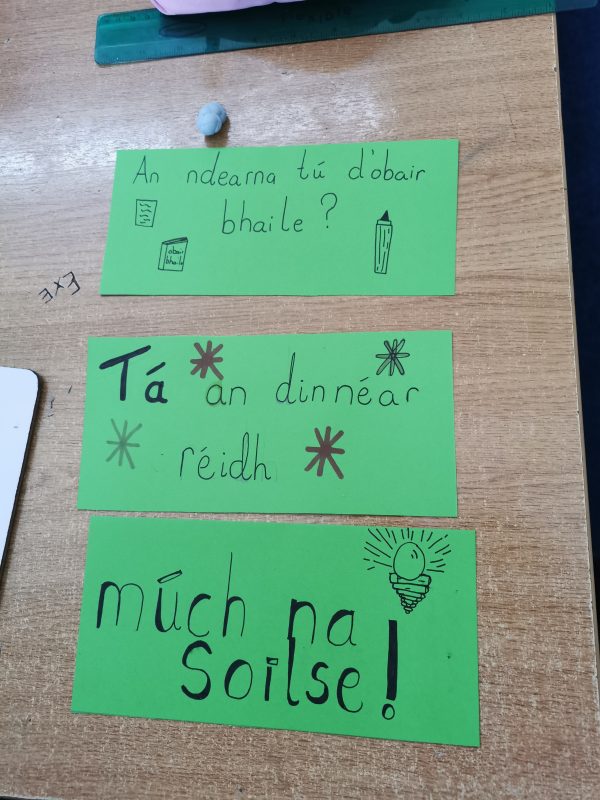 flexible
An ndearna tú d'obair
bhaile?
obair
bhaile
Tá an dinnéar
réidh
múch na
soilse!